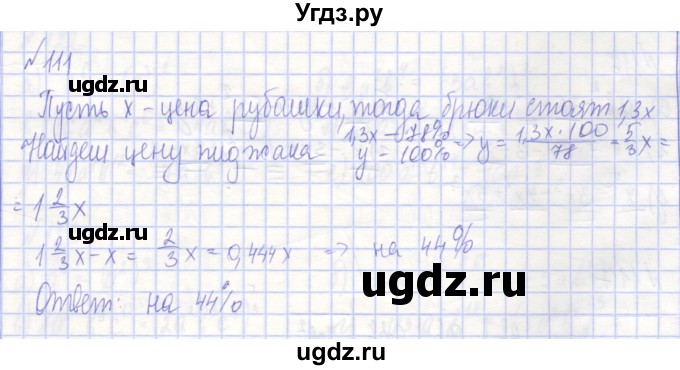 Угдз.ру
№111
Пусть x - цена рубашки, тогда брюки стоят 1,3x
Найдем цену пиджака 1,3x - 78% y - 100% => y = 1,3x·100/78 = 5/3 x =
= 1 2/3 x
1 2/3 x - x = 2/3 x = 0,444x => на 44%
Ответ: на 44%
ugdz.ru
ugdz.ru
ugdz.ru
ugdz.ru
ugdz.ru
ugdz.ru